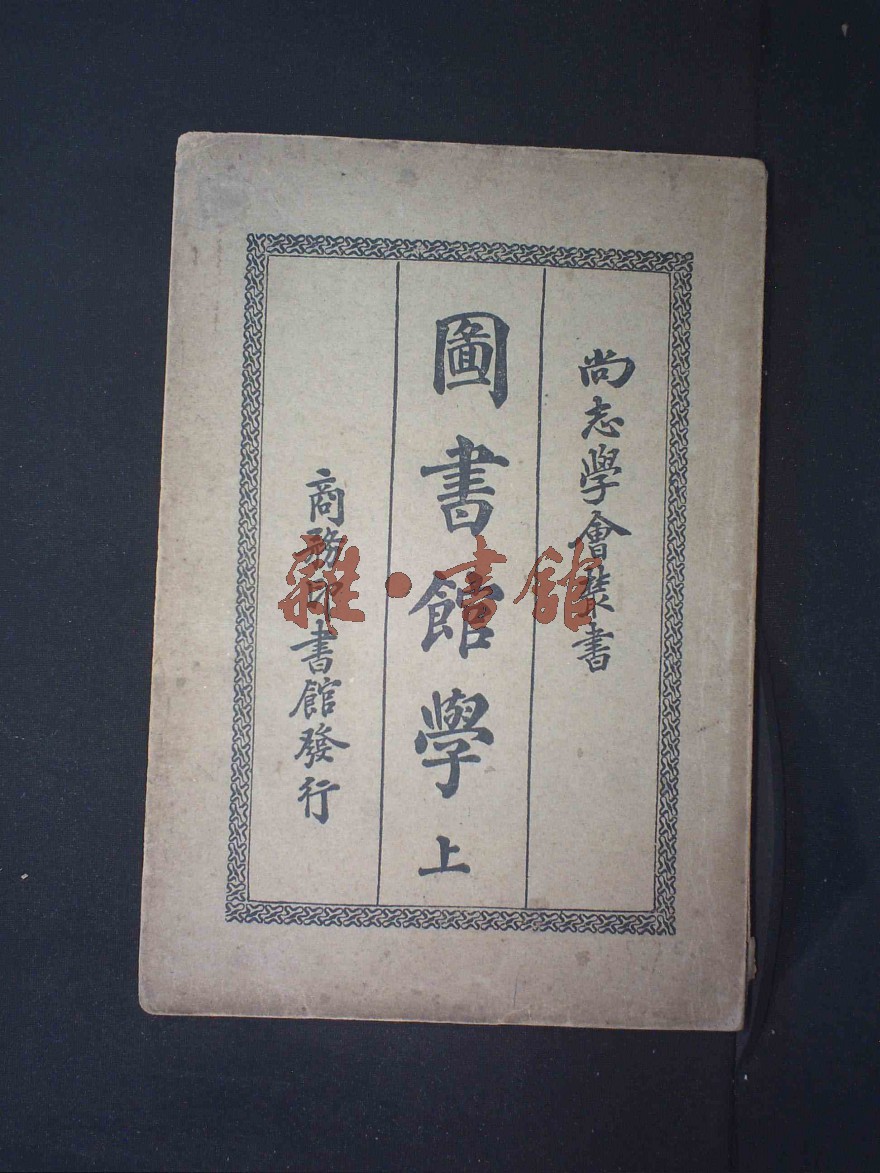 尚志學會叢書
圖書館學 上
商務印書館發行
雜·書館